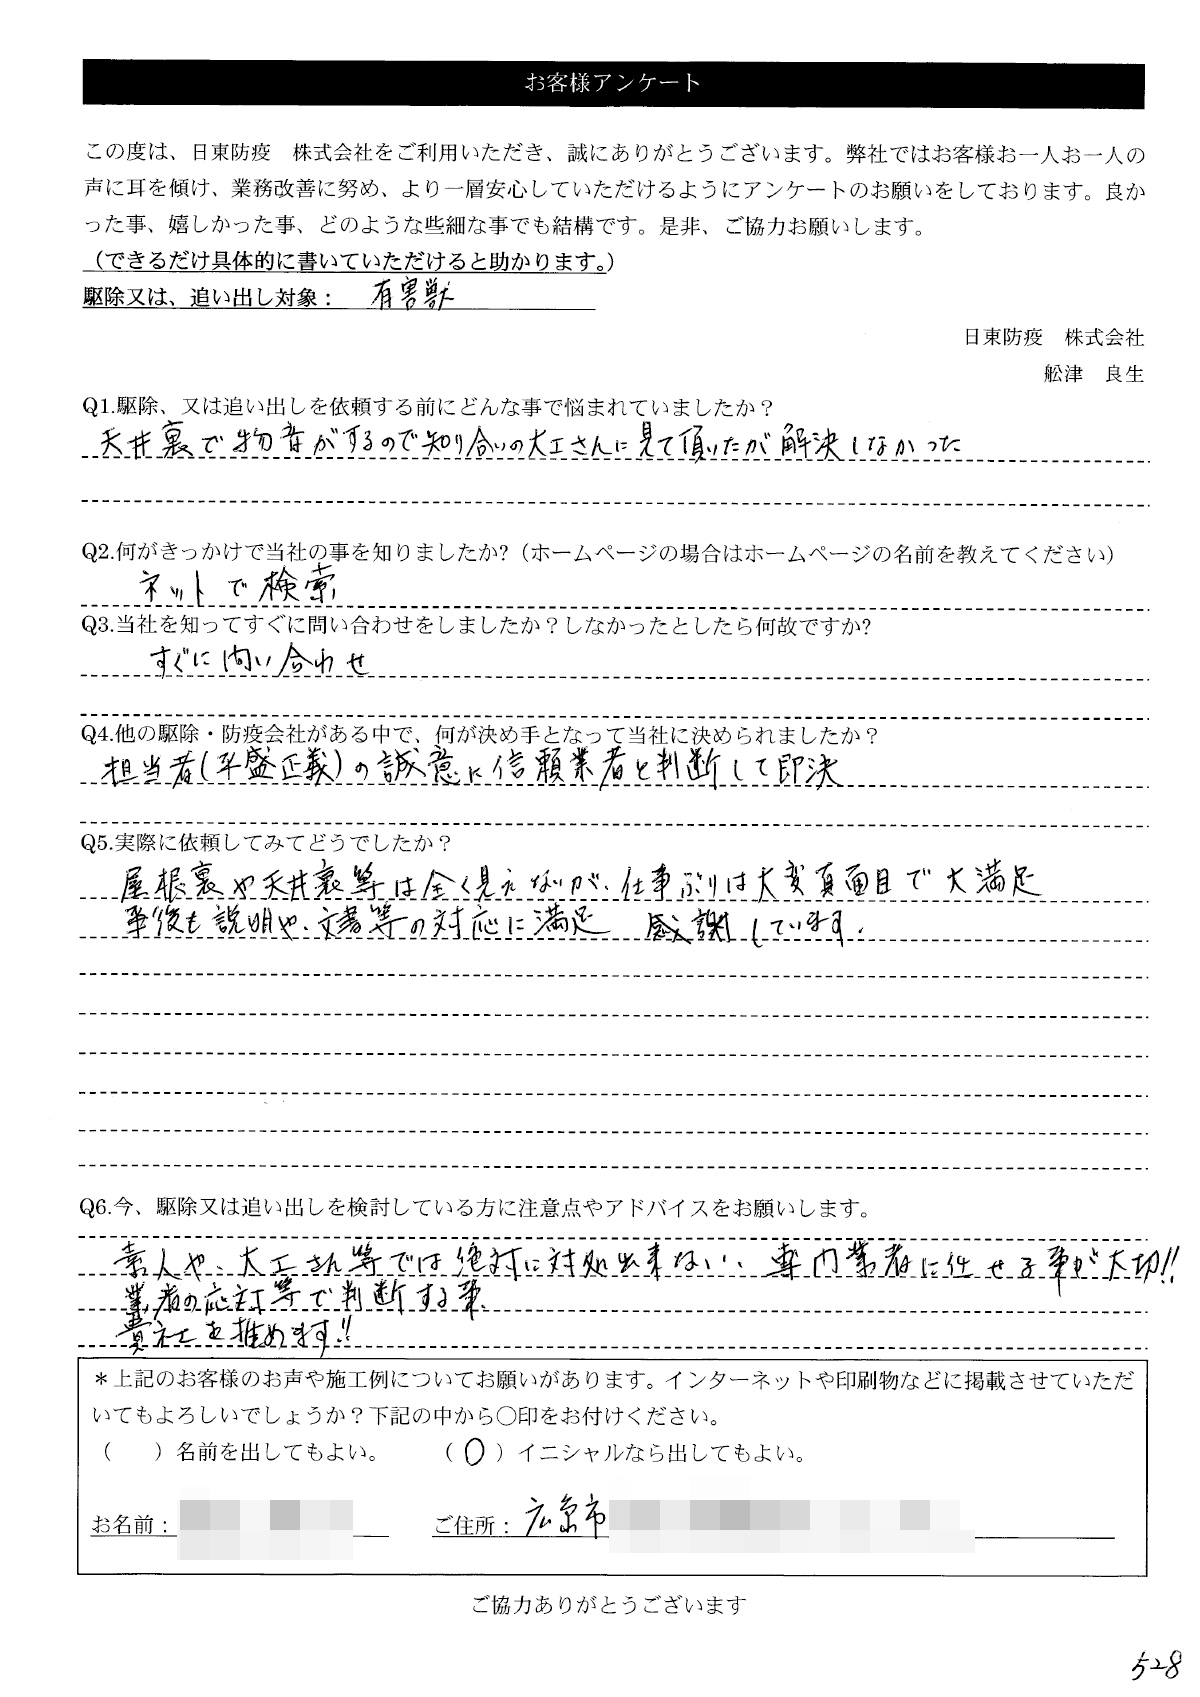 お客様アンケート
この度は、日東防疫　株式会社をご利用いただき、誠にありがとうございます。弊社ではお客様お一人お一人の
声に耳を傾け、業務改善に努め、より一層安心していただけるようにアンケートのお願いをしております。良か
った事、嬉しかった事、どのような些細な事でも結構です。是非、ご協力お願いします。
（できるだけ具体的に書いていただけると助かります。）
駆除又は、追い出し対象： 有害獣
日東防疫　株式会社
舩津　良生
Q1.駆除、又は追い出しを依頼する前にどんな事で悩まれていましたか？
天井裏で物音がするので知り合いの大工さんに見て頂いたが解決しなかった
Q2.何がきっかけで当社の事を知りましたか?（ホームページの場合はホームページの名前を教えてください）
ネットで検索
Q3.当社を知ってすぐに問い合わせをしましたか？しなかったとしたら何故ですか?
すぐに問い合わせ
Q4.他の駆除・防疫会社がある中で、何が決め手となって当社に決められましたか？
担当者(平盛正義)の誠意に信頼業者と判断して即決
Q5.実際に依頼してみてどうでしたか？
屋根裏や天井裏等は全く見えないが、仕事ぶりは大変真面目で大満足
事後も説明や、文書等の対応に満足　感謝しています.
Q6.今、駆除又は追い出しを検討している方に注意点やアドバイスをお願いします。
素人や、大工さん等では絶対に対処出来ない、専門業者に任せる事が大切!!
業者の応対等で判断する事、
貴社を推めます!!
＊上記のお客様のお声や施工例についてお願いがあります。インターネットや印刷物などに掲載させていただ
いてもよろしいでしょうか？下記の中から〇印をお付けください。
（　　）名前を出してもよい。　（〇）イニシャルなら出してもよい。
お名前：　ご住所：広島市
ご協力ありがとうございます
528